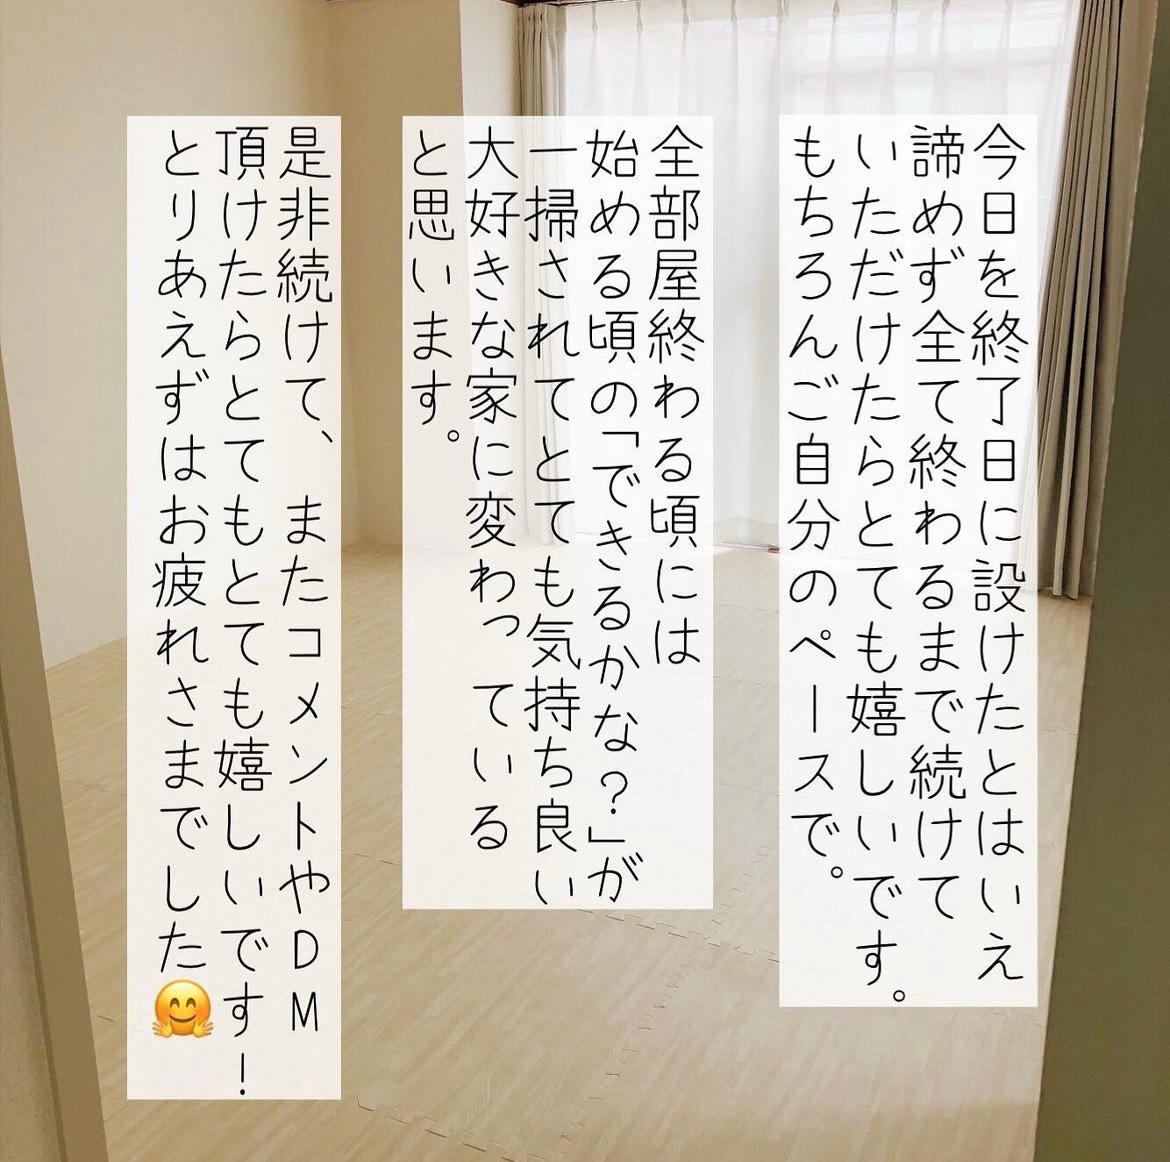 今日を終了日に設けたとはいえ
諦めず全て終わるまで続けて
いただけたらとても嬉しいです。
もちろんご自分のペースで。
全部屋終わる頃には
始める頃の「できるかな？」が
一掃されてとても気持ち良い
大好きな家に変わっている
と思います。
是非続けて、またコメントやDM
頂けたらとてもとても嬉しいです！
とりあえずはお疲れさまでした🤗